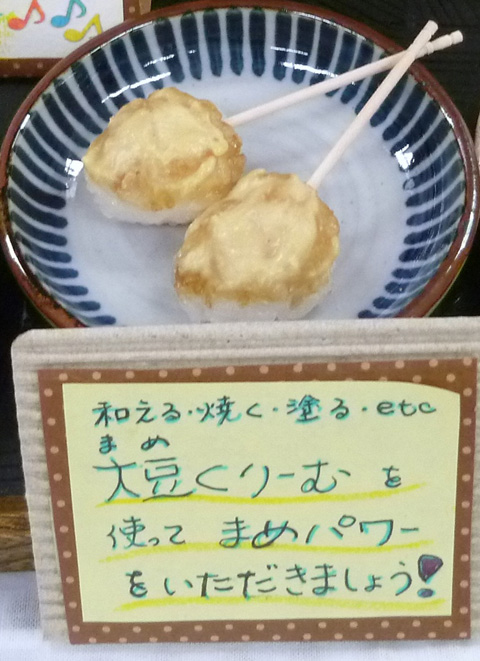 和える・焼く・塗る・etc
まめ
大豆くりーむ を
使って まめパワー
をいただきましょう!